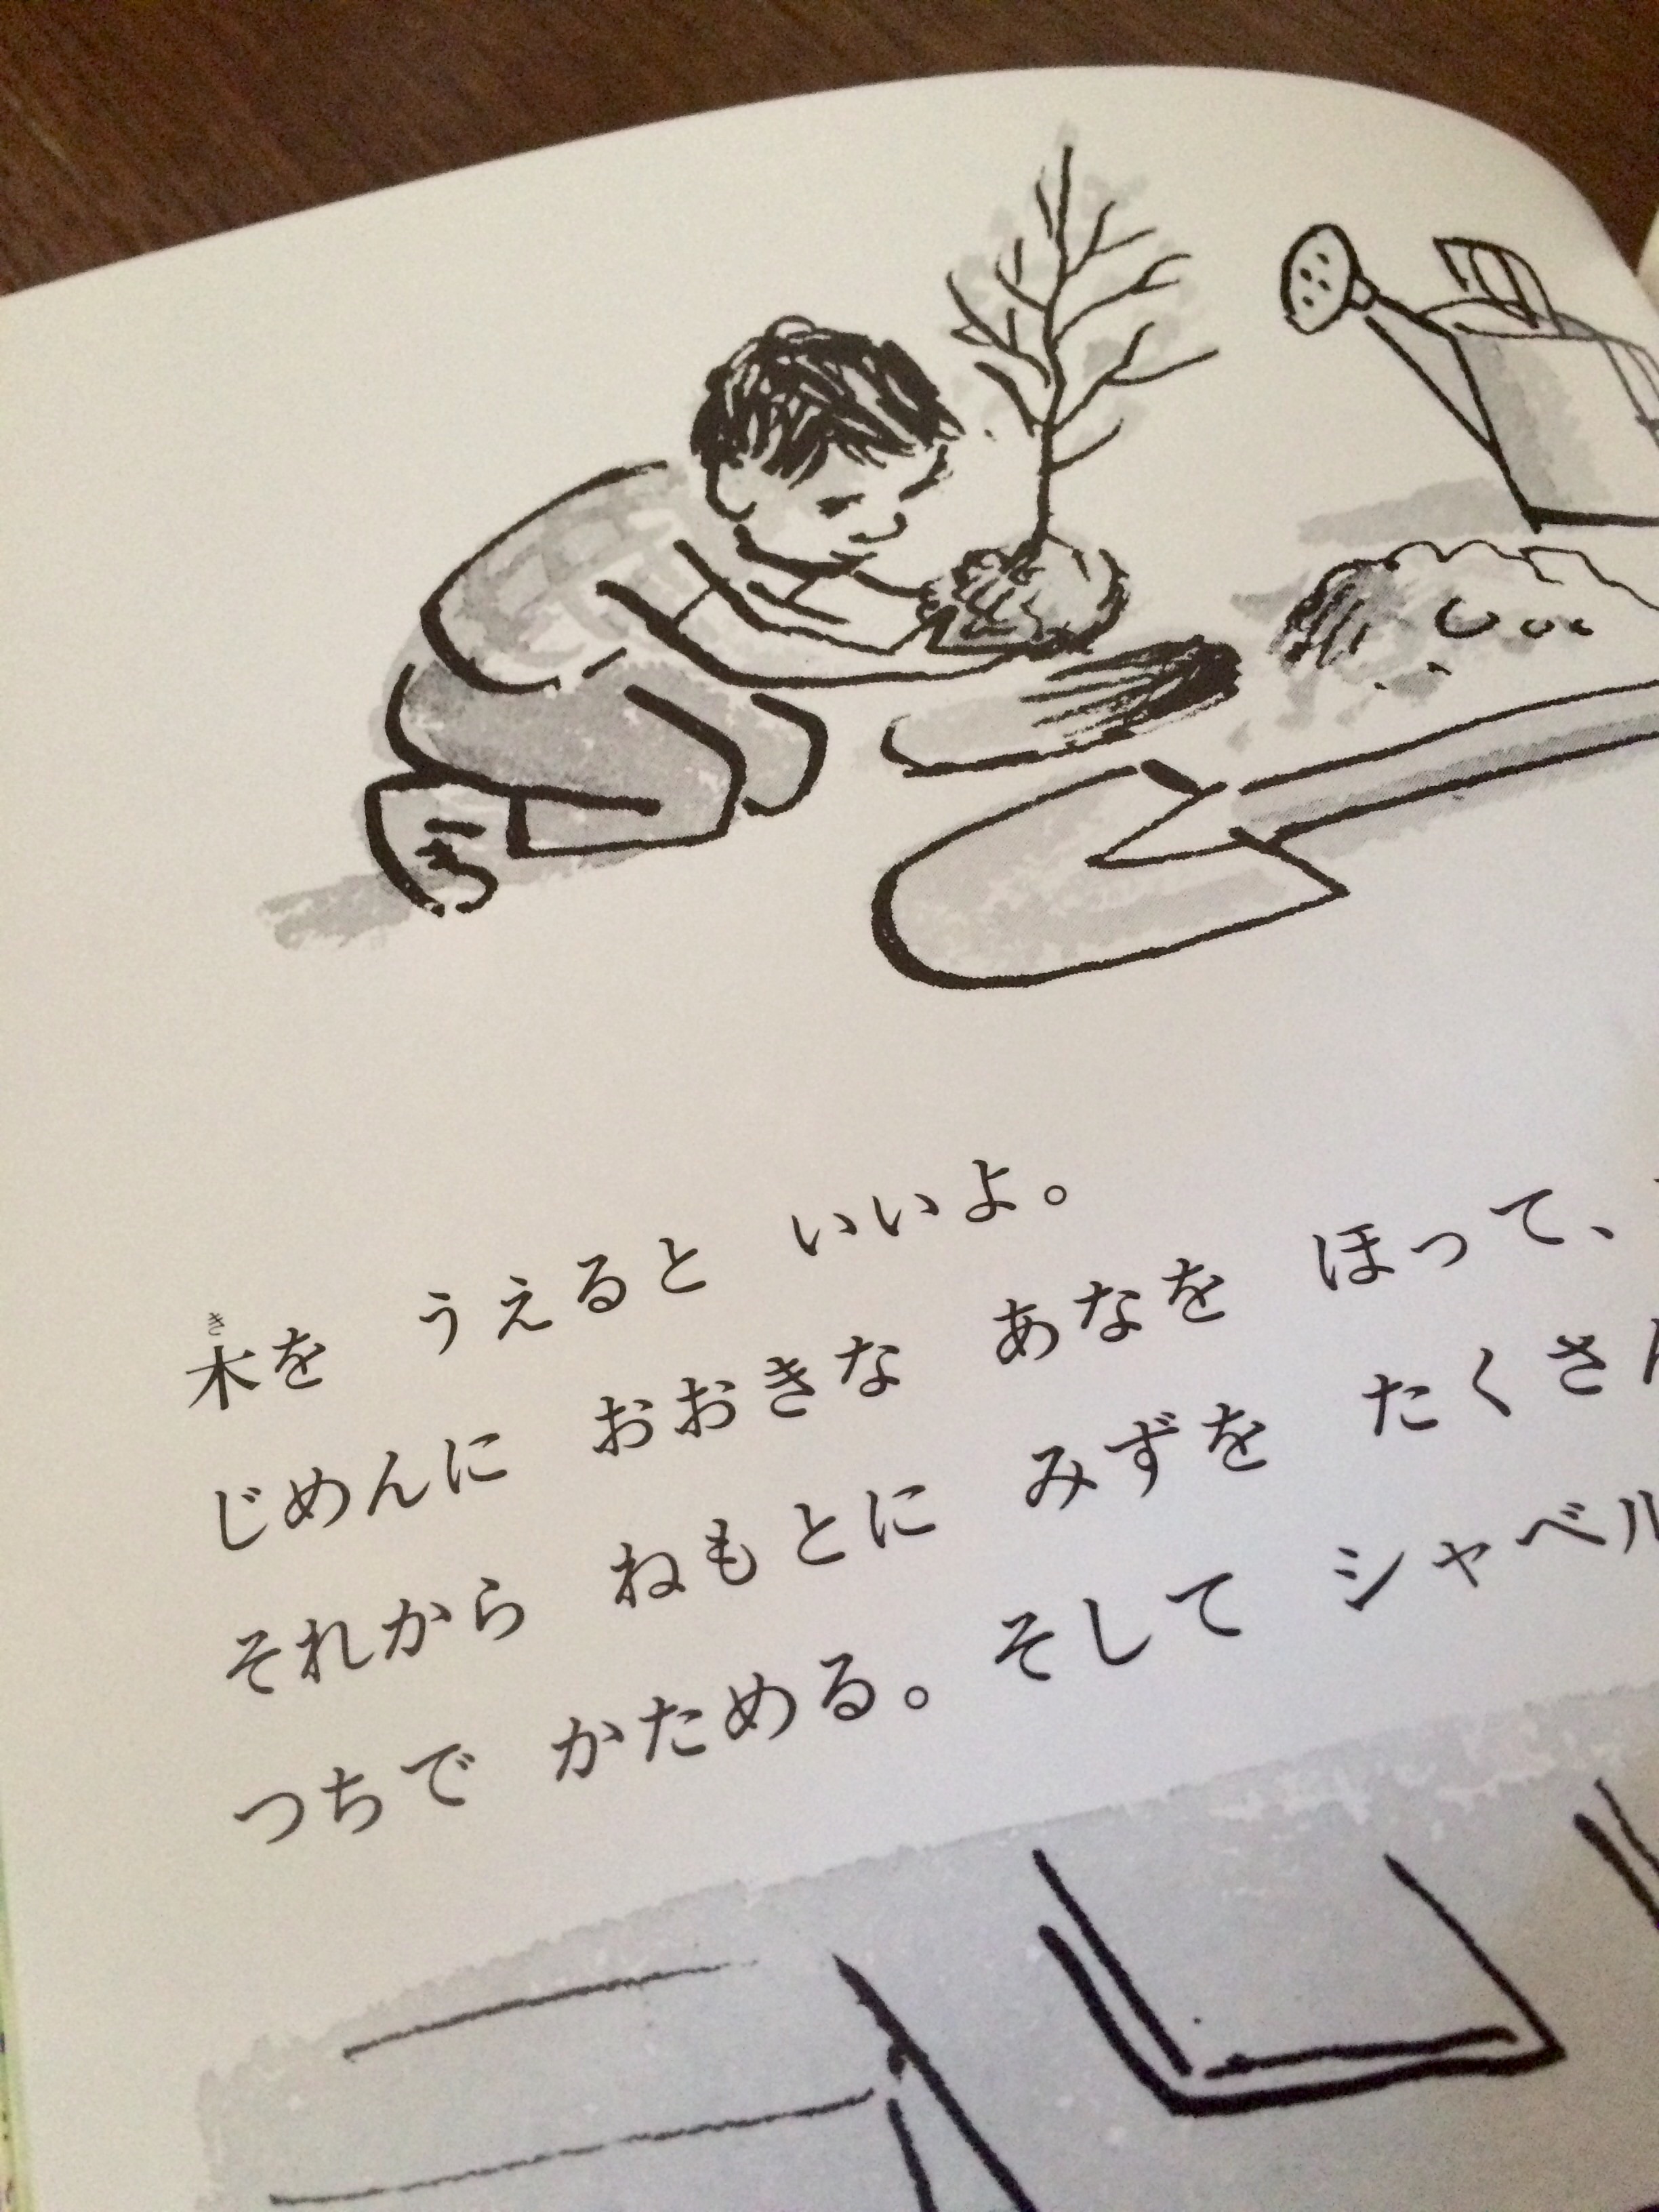 木を うえると いいよ。
じめんに おおきな あなを ほって、
それから ねもとに みずを たくさん
つちで かためる。そして シャベル